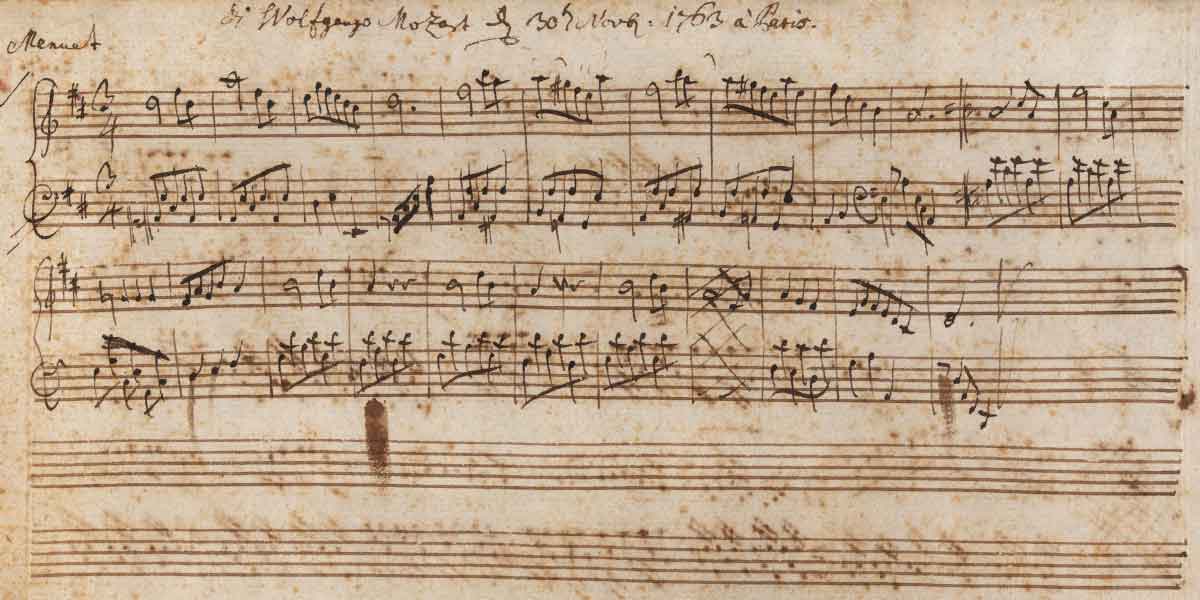 di Wolfgango Mozart d 30th Novb: 1763 à Paris.
Menuet
3
4
3
4